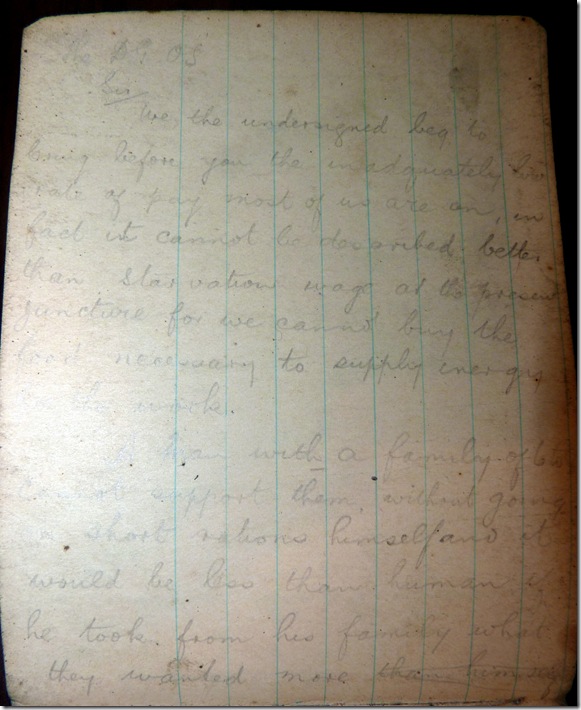 The D. G. O. S
Sir
We the undersigned beg to
bring before you the inadquately low
rate of pay most of us are on, in
fact it cannot be described better
than starvation wage at the present
juncture for we cannot buy the
food necessary to supply energy
to the work
A man with a family of
cannot support them, without going
on short rations himself and it
would be less than human if
he took from his family what
they wanted more than himself